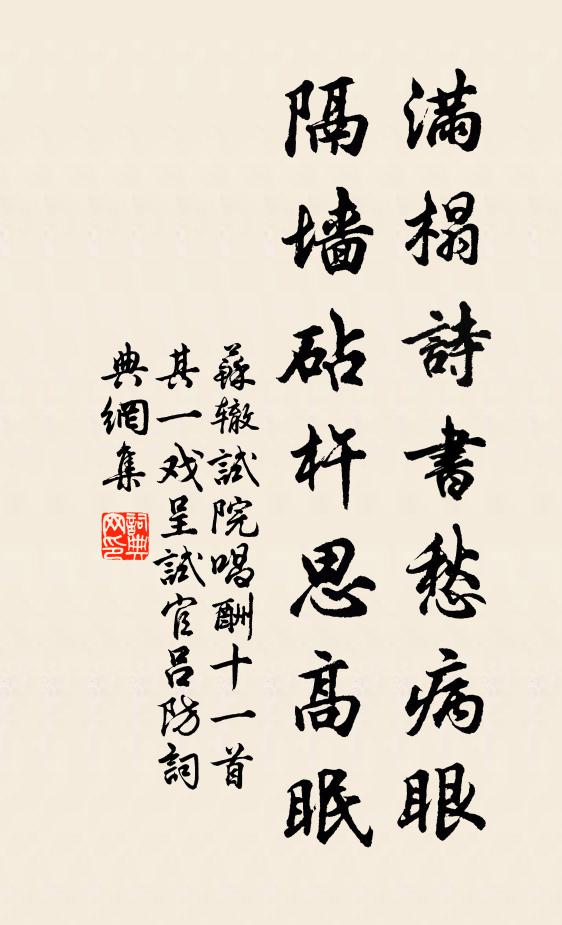 滿榻詩書愁病眼
隔墙砧杵思高眠
蘇辙試院唱酬十一首
其一戏呈試官吕防詞
典網集
詞典网印